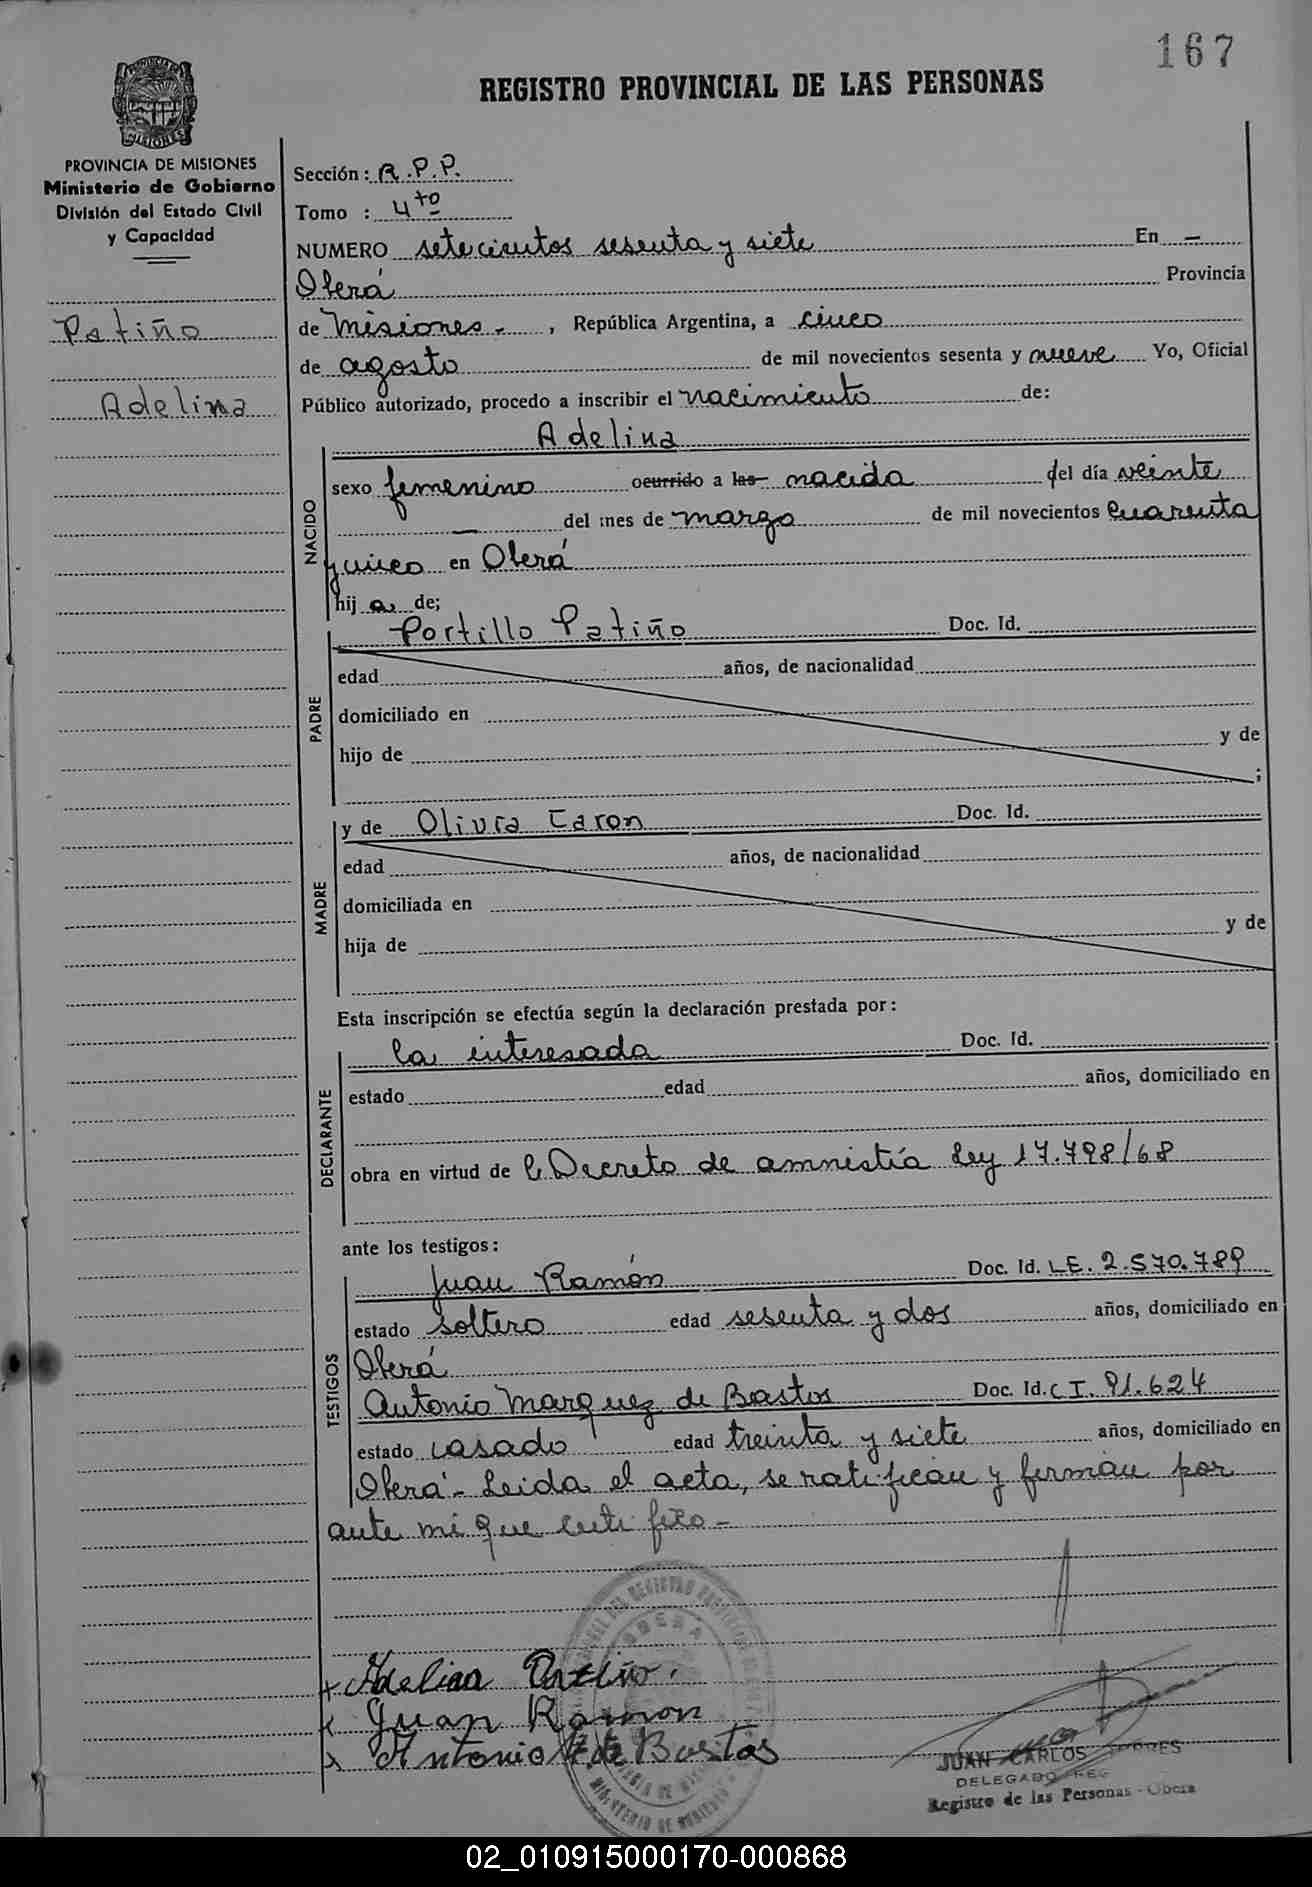 167
REGISTRO PROVINCIAL DE LAS PERSONAS
PROVINCIA DE MISIONES
MISIONES
PROVINCIA DE MISIONES
Ministerio de Gobierno
División del Estado Civil
y Capacidad
Patiño
Adelina
Sección: R.P.P.
Tomo : 4to
NUMERO setecientos sesenta y siete En —
Oberá Provincia
de Misiones - , República Argentina, a cinco
de agosto de mil novecientos sesenta y nueve Yo, Oficial
Público autorizado, procedo a inscribir el nacimiento de:
NACIDO
Adelina
sexo femenino ocurrido a las nacida del día veinte
— del mes de marzo de mil novecientos cuarenta
y cinco en Oberá
hij a de;
PADRE
Portillo Patiño Doc. Id.
edad años, de nacionalidad
domiciliado en
hijo de y de
;
MADRE
y de Olivia Caron Doc. Id.
edad años, de nacionalidad
domiciliada en
hija de y de
Esta inscripción se efectúa según la declaración prestada por:
DECLARANTE
la interesada Doc. Id.
estado edad años, domiciliado en
obra en virtud de l Decreto de amnistía Ley 17.798/68
ante los testigos:
TESTIGOS
Juan Ramón Doc. Id. LE. 2.570.789
estado soltero edad sesenta y dos años, domiciliado en
Oberá
Antonio Marquez de Bastos Doc. Id. CI. 91.624
estado casado edad treinta y siete años, domiciliado en
Oberá - Leida el acta, se ratifican y firman por
ante mi que certifico -
Adelina Patiño.
Juan Ramon
Antonio M. de Bastos
JUAN CARLOS TORRES
DELEGADO REG
Registro de las Personas - Obera
02_010915000170-000868